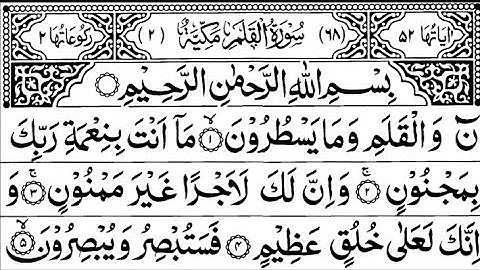 اٰيَاتُهَا ٥٢ (٦٨) سُوْرَةُ الْقَلَمِ مَكِّيَّةٌ (٢) رُكُوْعَاتُهَا ٢
بِسْمِ اللهِ الرَّحْمٰنِ الرَّحِيْمِ
نٓ وَالْقَلَمِ وَمَا يَسْطُرُوْنَ ۙ﴿١﴾ مَاۤ اَنْتَ بِنِعْمَةِ رَبِّكَ
بِمَجْنُوْنٍ ۚ﴿٢﴾ وَاِنَّ لَكَ لَاَجْرًا غَيْرَ مَمْنُوْنٍ ۚ﴿٣﴾ وَ
اِنَّكَ لَعَلٰى خُلُقٍ عَظِيْمٍ ﴿٤﴾ فَسَتُبْصِرُ وَيُبْصِرُوْنَ ۙ﴿٥﴾